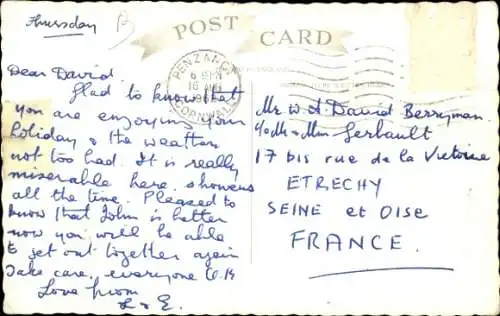 Thursday
B
POST CARD
PENZANCE
CORNWALL
Dear David.
Glad to know that
you are enjoying your
holiday & the weather
not too bad. It is really
miserable here. showers
all the time. Pleased to
know that John is better
now you will be able
to get out together again
Take care, everyone O.K
Love from
L & E.
Mr W A David Berryman.
c/o Mr & Mme Gerbault
17 bis rue de la Victoire
ETRECHY
SEINE et OISE
FRANCE.